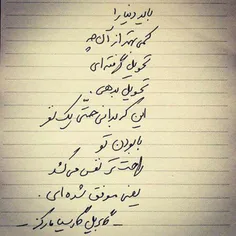 باید دنیا را
کمی بهتر از آنچه
تحویل گرفته‌ای
تحویل بدهی.
این که بدانی حتی یک نفر
با بودن تو
راحت‌تر نفس می‌کشد
یعنی موفق شده‌ای.
ـ گابریل گارسیا مارکز ـ